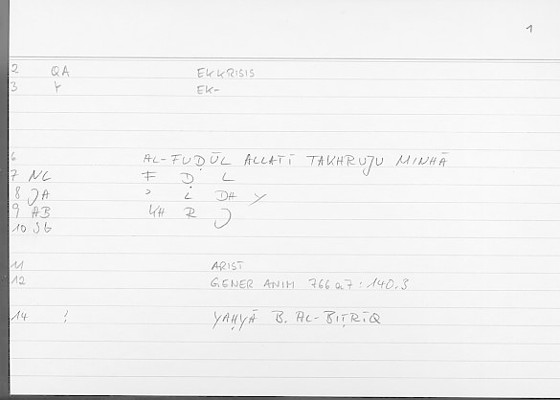 1
2 QA EKKRISIS
3 Y EK-
6 AL-FUḌŪL ALLATĪ TAKHRUJU MINHĀ
7 NL F Ḍ L
8 JA ʾ L DH Y
9 AB KH R J
10 Sb
11 ARIST
12 GENER ANIM 766a7 : 140.3
14 ! YAḤYĀ B. AL-BIṬRĪQ